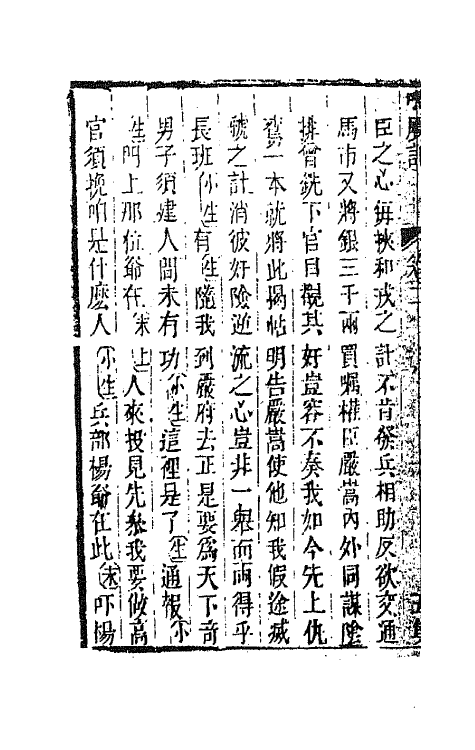 臣之心每挾和戎之計不肯發兵相助反欲交通
馬市又將銀三千兩買囑權臣嚴嵩內外同謀陰
排曾銑下官目覩其奸豈容不奏我如今先上仇
鸞一本就將此揭帖明告嚴嵩使他知我假途滅
虢之計消彼奸險逆流之心豈非一舉而兩得乎
長班小生有生隨我到嚴府去正是要爲天下奇
男子須建人間未有功小生這裡是了生通報小
生門上那位爺在末上人來投見先叅我要做高
官須挽咱是什麽人小生兵部楊爺在此末吓楊